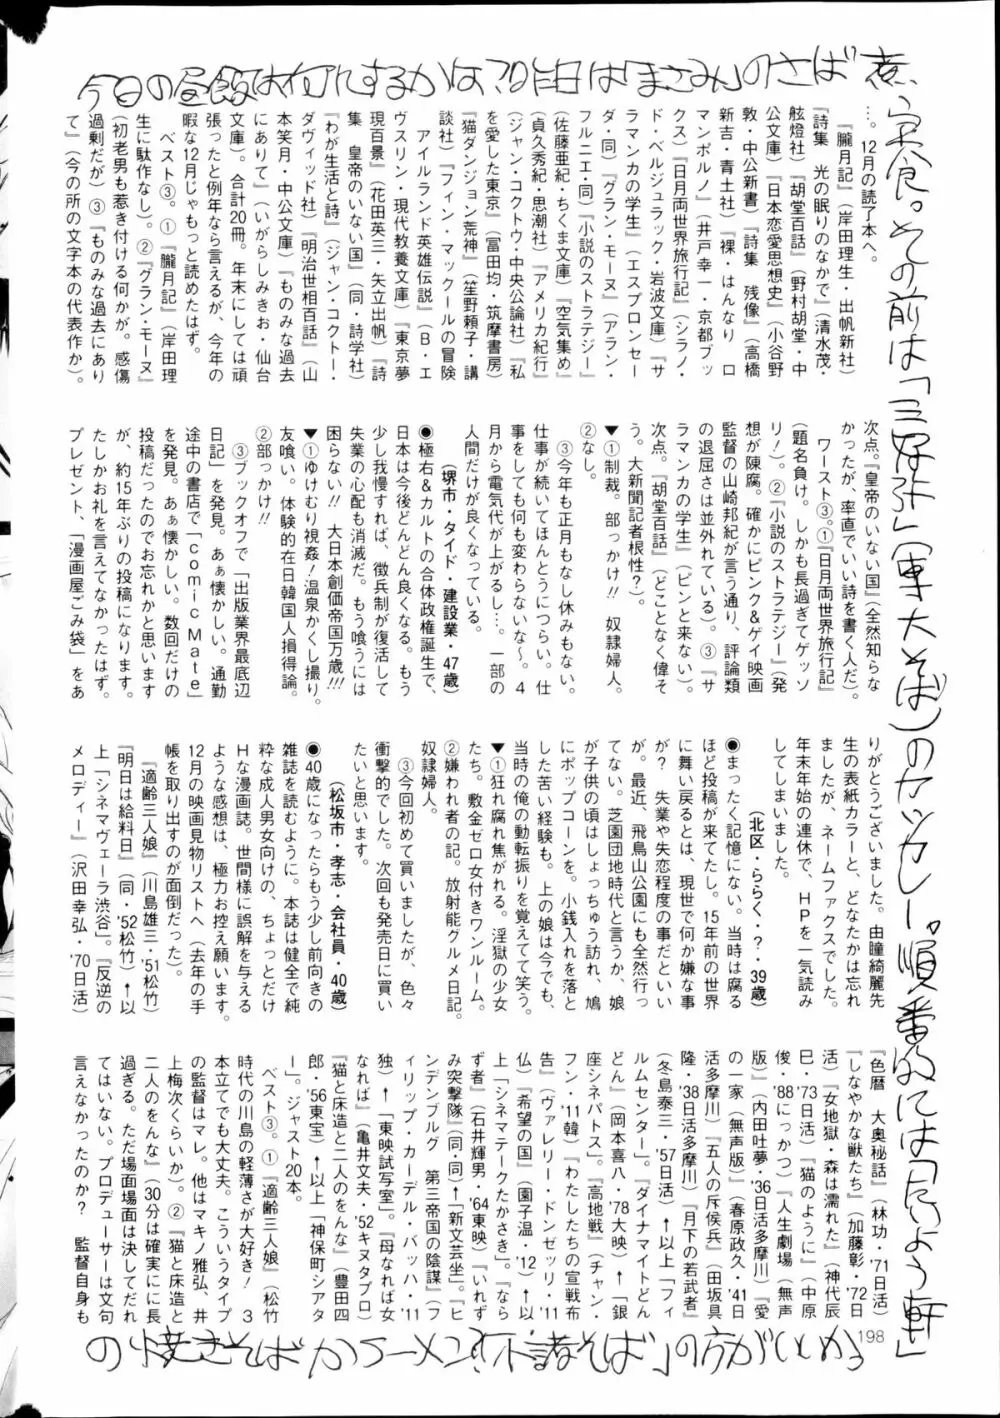 今日の昼飯は何にするかな？昨日は「まさみ」のさば煮
定食。その前は「三好弥」(東大そば)のカツカレー。順番的には
の焼きそばかラーメン？
そば」の方がいいか
…。12月の読了本へ。
『朧月記』（岸田理生・出帆新社）
『詩集　光の眠りのなかで』（清水茂・
舷燈社）『胡堂百話』（野村胡堂・中
公文庫）『日本恋愛思想史』（小谷野
敦・中公新書）『詩集　残像』（高橋
新吉・青土社）『裸・はんなり　ロ
マンポルノ』（井戸幸一・京都ブッ
クス）『日月両世界旅行記』（シラノ・
ド・ベルジュラック・岩波文庫）『サ
ラマンカの学生』（エスプロンセー
ダ・同）『グラン・モーヌ』（アラン・
フルニエ・同）『小説のストラテジー』
（佐藤亜紀・ちくま文庫）『空気集め』
（貞久秀紀・思潮社）『アメリカ紀行』
（ジャン・コクトウ・中央公論社）『私
を愛した東京』（冨田均・筑摩書房）
『猫ダンジョン荒神』（笙野頼子・講
談社）『フィン・マックールの冒険
アイルランド英雄伝説』（Ｂ・エ
ヴスリン・現代教養文庫）『東京夢
現百景』（花田英三・矢立出帆）『詩
集　皇帝のいない国』（同・詩学社）
『わが生活と詩』（ジャン・コクトー・
ダヴィッド社）『明治世相百話』（山
本笑月・中公文庫）『ものみな過去
にありて』（いがらしみきお・仙台
文庫）。合計20冊。年末にしては頑
張ったと例年なら言えるが、今年の
暇な12月じゃもっと読めたはず。
ベスト③。①『朧月記』（岸田理
生に駄作なし）。②『グラン・モーヌ』
（初老男も惹き付ける何かが。感傷
過剰だが）③『ものみな過去にあり
て』（今の所の文字本の代表作か）。
次点。『皇帝のいない国』（全然知らな
かったが、率直でいい詩を書く人だ）。
ワースト③。①『日月両世界旅行記』
（題名負け。しかも長過ぎてゲッソ
リ！）。②『小説のストラテジー』（発
想が陳腐。確かにピンク＆ゲイ映画
監督の山崎邦紀が言う通り、評論類
の退屈さは並外れている）。③『サ
ラマンカの学生』（ピンと来ない）。
次点。『胡堂百話』（どことなく偉そ
う。大新聞記者根性？）。
▼①制裁。部っかけ!!　奴隷婦人。
②なし。
③今年も正月もなし休みもない。
仕事が続いてほんとうにつらい。仕
事をしても何も変わらないな〜。４
月から電気代が上がるし…。一部の
人間だけが良くなっている。
（堺市・タイド・建設業・47歳）
●極右＆カルトの合体政権誕生で、
日本は今後どんどん良くなる。もう
少し我慢すれば、徴兵制が復活して
失業の心配も消滅だ。もう喰うには
困らない!!　大日本創価帝国万歳!!!
▼①ゆけむり視姦！温泉かくし撮り。
友喰い。体験的在日韓国人損得論。
②部っかけ!!
③ブックオフで「出版業界最底辺
日記」を発見。あぁ懐かしい。通勤
途中の書店で「comic Mate」
を発見。あぁ懐かしい。数回だけの
投稿だったのでお忘れかと思います
が、約15年ぶりの投稿になります。
たしかお礼を言えてなかったはず。
プレゼント、「漫画屋ごみ袋」をあ
りがとうございました。由瞳綺麗先
生の表紙カラーと、どなたかは忘れ
ましたが、ネームファクスでした。
年末年始の連休で、ＨＰを一気読み
してしまいました。
（北区・ららく・？・39歳）
●まったく記憶にない。当時は腐る
ほど投稿が来てたし。15年前の世界
に舞い戻るとは、現世で何か嫌な事
が？　失業や失恋程度の事だといい
が。最近、飛鳥山公園にも全然行っ
てない。芝園団地時代と言うか、娘
が子供の頃はしょっちゅう訪れ、鳩
にポップコーンを。小銭入れを落と
した苦い経験も。上の娘は今でも、
当時の俺の動転振りを覚えてて笑う。
▼①狂れ腐れ焦がれる。淫獄の少女
たち。敷金ゼロ女付きワンルーム。
②嫌われ者の記。放射能グルメ日記。
奴隷婦人。
③今回初めて買いましたが、色々
衝撃的でした。次回も発売日に買い
たいと思います。
（松坂市・孝志・会社員・40歳）
●40歳になったらもう少し前向きの
雑誌を読むように。本誌は健全で純
粋な成人男女向けの、ちょっとだけ
Ｈな漫画誌。世間様に誤解を与える
ような感想は、極力お控え願います。
12月の映画見物リストへ（去年の手
帳を取り出すのが面倒だった）。
『適齢三人娘』（川島雄三・'51松竹）
『明日は給料日』（同・'52松竹）↑以
上「シネマヴェーラ渋谷」。『反逆の
メロディー』（沢田幸弘・'70日活）
『色暦　大奥秘話』（林功・'71日活）
『しなやかな獣たち』（加藤彰・'72日
活）『女地獄・森は濡れた』（神代辰
巳・'73日活）『猫のように』（中原
俊・'88にっかつ）『人生劇場（無声
版）』（内田吐夢・'36日活多摩川）『愛
の一家（無声版）』（春原政久・'41日
活多摩川）『五人の斥候兵』（田坂具
隆・'38日活多摩川）『月下の若武者』
（冬島泰三・'57日活）↑以上「フィ
ルムセンター」。『ダイナマイトどん
どん』（岡本喜八・'78大映）↑「銀
座シネパトス」。『高地戦』（チャン・
フン・'11韓）『わたしたちの宣戦布
告』（ヴァレリー・ドンゼッリ・'11
仏）『希望の国』（園子温・'12）↑以
上「シネマテークたかさき」。『なら
ず者』（石井輝男・'64東映）『いれず
み突撃隊』（同・同）↑「新文芸坐」。『ヒ
ンデンブルグ　第三帝国の陰謀』（フ
ィリップ・カーデル・バッハ・'11
独）↑「東映試写室」。『母なれば女
なれば』（亀井文夫・'52キヌタプロ）
『猫と床造と二人のをんな』（豊田四
郎・'56東宝）↑以上「神保町シアタ
ー」。ジャスト20本。
ベスト③。①『適齢三人娘』（松竹
時代の川島の軽薄さが大好き！　３
本立てでも大丈夫。こういうタイプ
の監督はマレ。他はマキノ雅弘、井
上梅次くらいか）。②『猫と床造と
二人のをんな』（30分は確実にに長
過ぎる。ただ場面場面は決してだれ
てはいない。プロデューサーは文句
言えなかったのか？　監督自身も
198